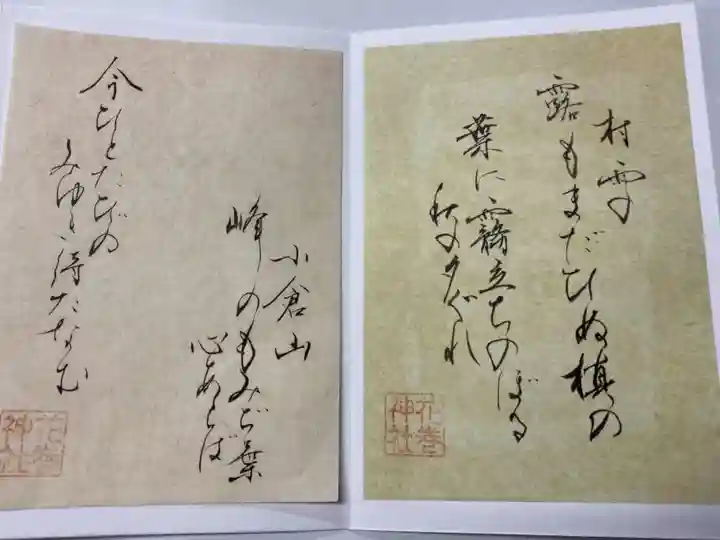 村雨の
露もまだひぬ槙の
葉に霧立ちのぼる
秋の夕ぐれ
花巻
神社
小倉山
峰のもみぢ葉
心あらば
今ひとたびの
みゆき待たなむ
神社